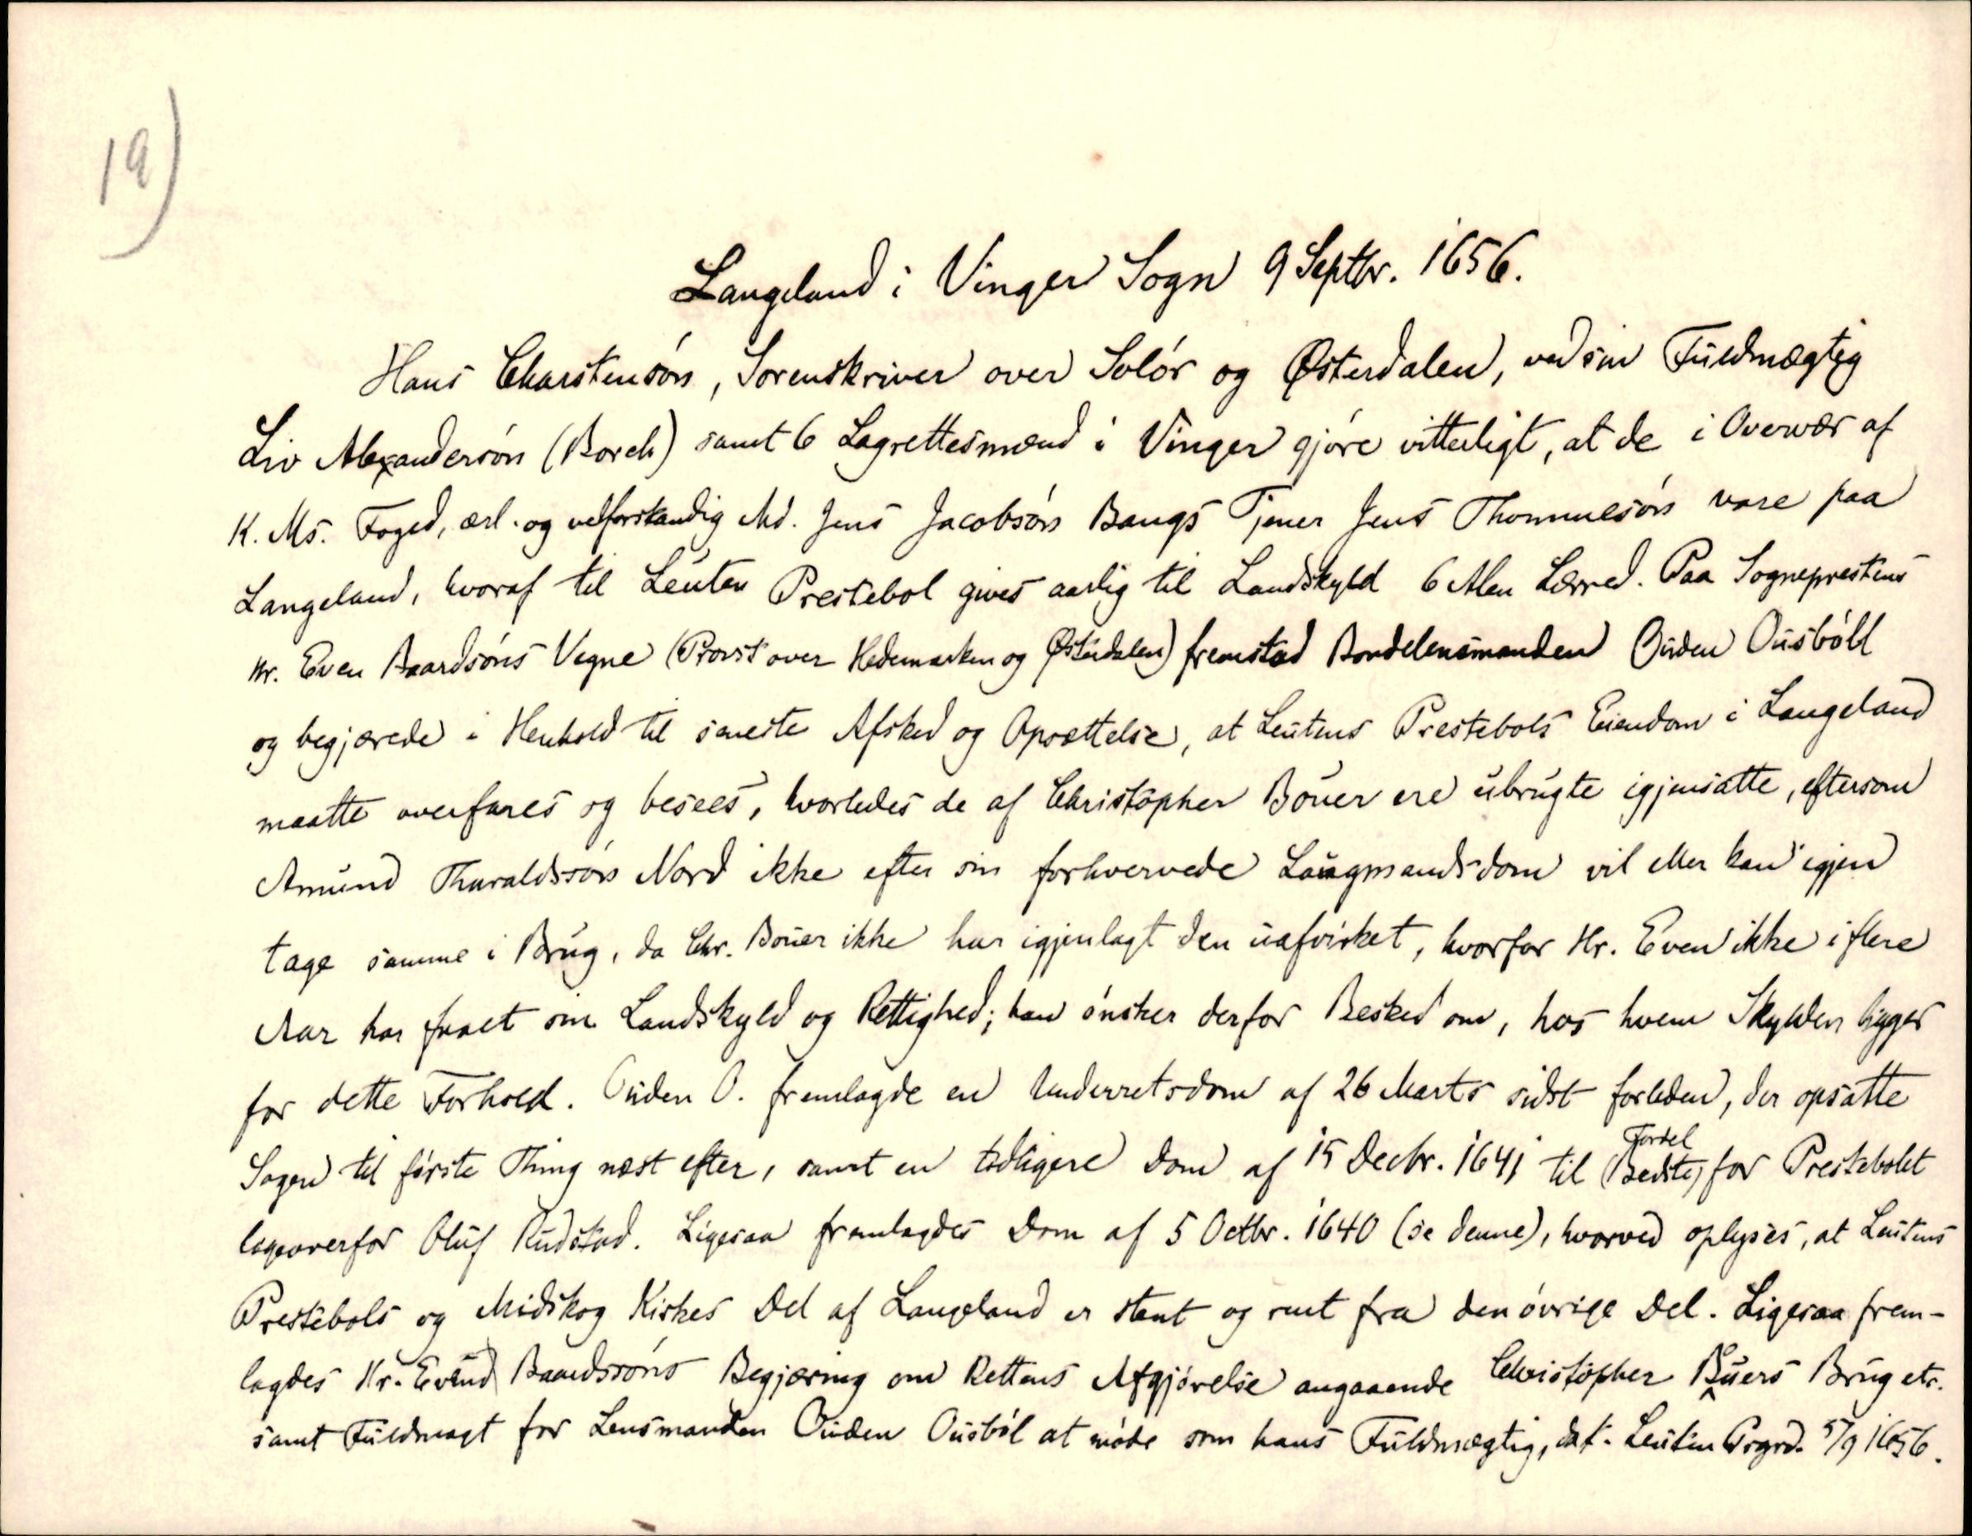 19)
Langeland i Vinger Sogn 9 Septbr. 1656.
Hans Charstensön, Sorenskriver over Solór og Østerdalen, ved sin Fuldmægtig
Liv Alexandersön (Borch) samt 6 Lagrettesmænd i Vinger gjöre vitterligt, at de i Overvær af
K. Ms. Foged, ærl. og velforstandig Md. Jens Jacobsön Bangs Tjener Jens Thommesön vare paa
Langeland, hvoraf til Leuten Prestebol gives aarlig til Landskyld 6 Alen Lærred. Paa Sogneprestens
Hr. Even Baardsöns Vegne (Provst over Hedemarken og Østerdalen) fremstod Bondelensmanden Ouden Ousböll
og begjærede i Henhold til seneste Afsked og Opsættelse, at Leutens Prestebols Eiendom i Langeland
maatte overfares og besees, hvorledes de af Christopher Bouer ere ubrugte igjensatte, eftersom
Amund Tharaldssöns Nord ikke efter sin forhvervede Laugmandsdom vil eller kan igjen
tage samme i Brug, da Chr. Bouer ikke har igjenlagt den uafvirket, hvorfor Hr. Even ikke i flere
Aar har faaet sin Landskyld og Rettighed; han önsker derfor Besked om, hos hvem Skylden ligger
for dette Forhold. Ouden O. fremlagde en Underretsdom af 26 Marts sidst forleden, der opsatte
Sagen til förste Thing næst efter, samt en tidligere Dom af 15 Decbr. 1641 til (Bedste) Fordel for Prestebolet
ligeoverfor Oluf Rudstad. Ligesaa fremlagdes Dom af 5 Octbr. 1640 (se denne), hvorved oplyses, at Leutens
Prestebols og Midskog Kirkes Del af Langeland er stent og rent fra den övrige Del. Ligesaa frem-
lagdes Hr. Evend Baardssöns Begjæring om Rettens Afgjörelse angaaende Christopher Buers Brug etc.
samt Fuldmagt for Lensmanden Ouden Ousböl at möde som hans Fuldmægtig, dat. Leuten Prgrd. 5/9 1656.